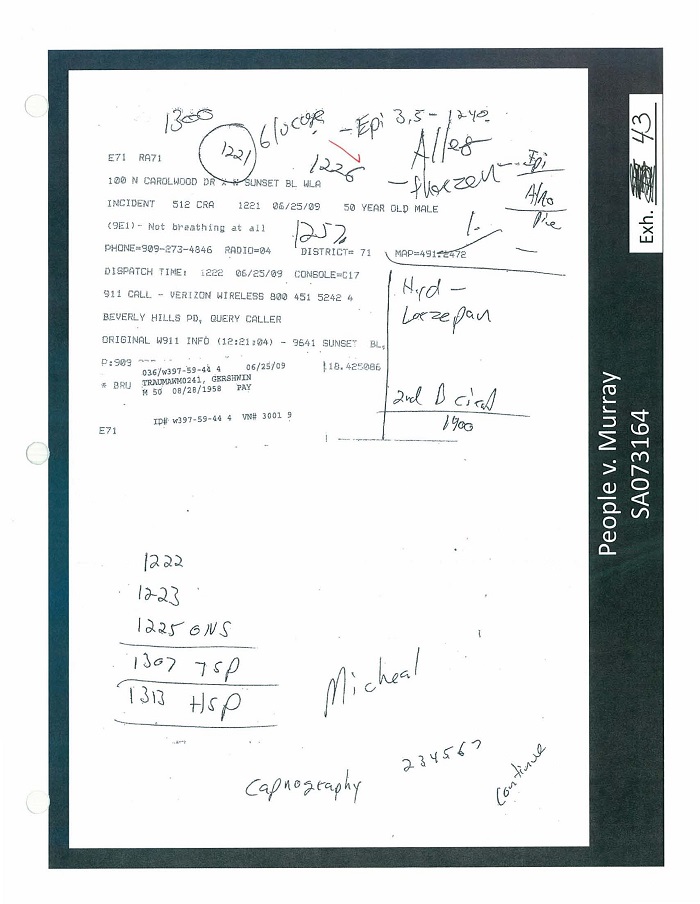 1300
Glucose
- Epi 3,5 - 1240
1221
1226
Alles
E71 RA71
100 N CAROLWOOD DR X N SUNSET BL WLA
Epi
INCIDENT 512 CRA 1221 06/25/09 50 YEAR OLD MALE
(9E1)- Not breathing at all
1257
PHONE=909-273-4846 RADIO=04 DISTRICT= 71 MAP=491-2472
DISPATCH TIME: 1222 06/25/09 CONSOLE=C17
911 CALL - VERIZON WIRELESS 800 451 5242 4
BEVERLY HILLS PD, QUERY CALLER
ORIGINAL W911 INFO (12:21:04) - 9641 SUNSET BL,
P:909 118.425086
036/w397-59-44 4 06/25/09
TRAUMAWM0241, GERSHWIN
* BRU
M 50 08/28/1958 PAY
ID# w397-59-44 4 VN# 3001 9
E71
Hyd -
Lorzepan
2nd
1400
1222
1223
1225 ONS
1307 TSP
1313 HSP
Micheal
234567
Capnography
continue
Exh. 43
People v. Murray
SA073164